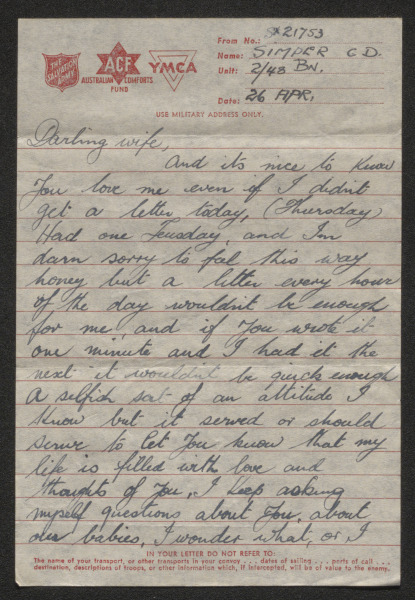 THE SALVATION ARMY
ACF
AUSTRALIAN COMFORTS FUND
YMCA
From No.: SX21753
Name: SIMPER C D.
Unit: 2/48 Bn.
Date: 26 APR,
USE MILITARY ADDRESS ONLY.
Darling wife,
And its nice to know
You love me even if I didn't
get a letter today, (Thursday)
Had one Teusday, and I'm
darn sorry to feel this way
honey but a letter every hour
of the day wouldn't be enough
for me and if you wrote it
one minute and I had it the
next it wouldn't be quick enough
A selfish sort of an attitude I
know but it served or should
serve to let you know that my
life is filled with love and
thoughts of you, I keep asking
myself questions about you, about
our babies, I wonder what, or I
IN YOUR LETTER DO NOT REFER TO:
The name of your transport, or other transports in your convoy . . . dates of sailing . . . ports of call . . .
destination, descriptions of troops, or other information which, if intercepted, will be of value to the enemy.